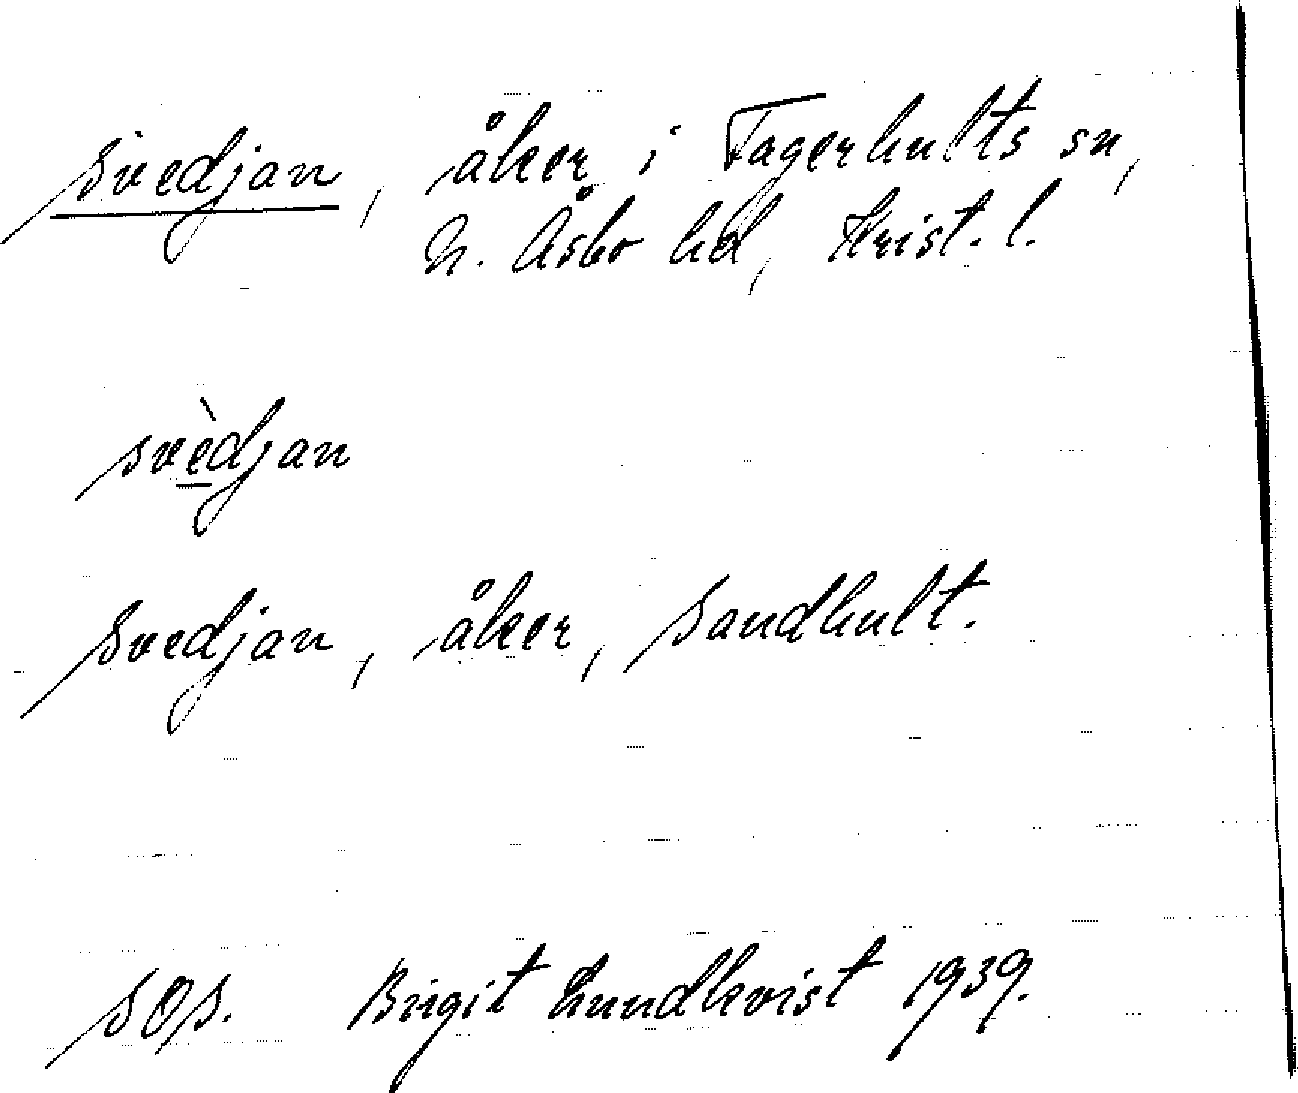 Svedjan, åker i Fagerhults sn,
N. Åsbo hd, Krist. l.
svèdjan
Svedjan, åker, Sandhult.
SOS. Birgit Lundkvist 1939.